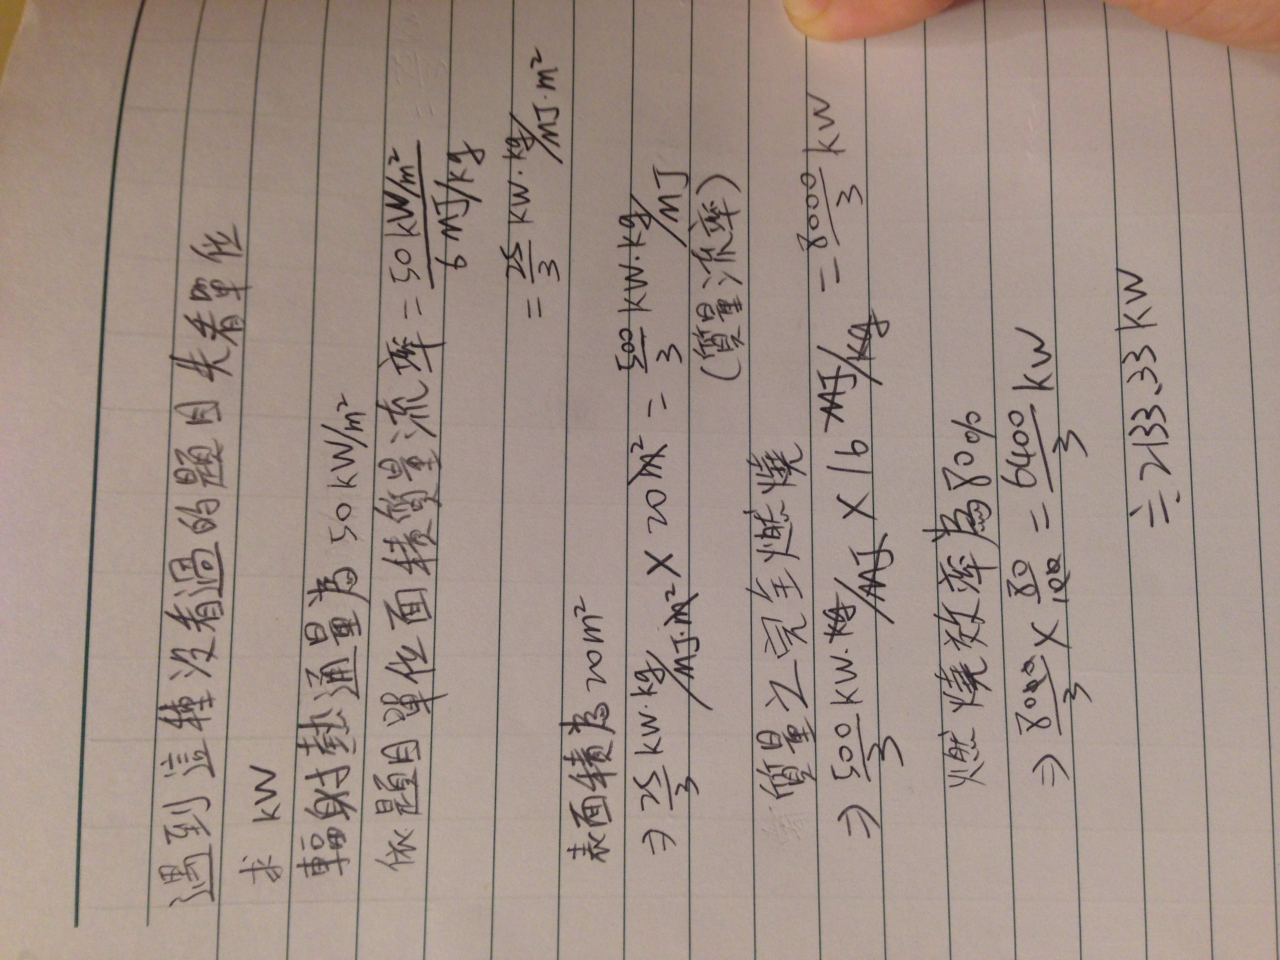 遇到這種沒看過的題目 先看單位
求 kW
輻射熱通量為 50 kW/m²
依題目單位面積質量流率 = 50 kW/m² / 6 MJ/kg
= 25/3 kW·kg/MJ·m²
表面積為 20m²
⇒ 25/3 kW·kg/MJ·m² × 20 m² = 500/3 kW·kg/MJ
(質量流率)
質量之完全燃燒
⇒ 500/3 kW·kg/MJ × 16 MJ/kg = 8000/3 kW
燃燒效率為80%
⇒ 8000/3 × 80/100 = 6400/3 kW
≒ 2133.33 kW